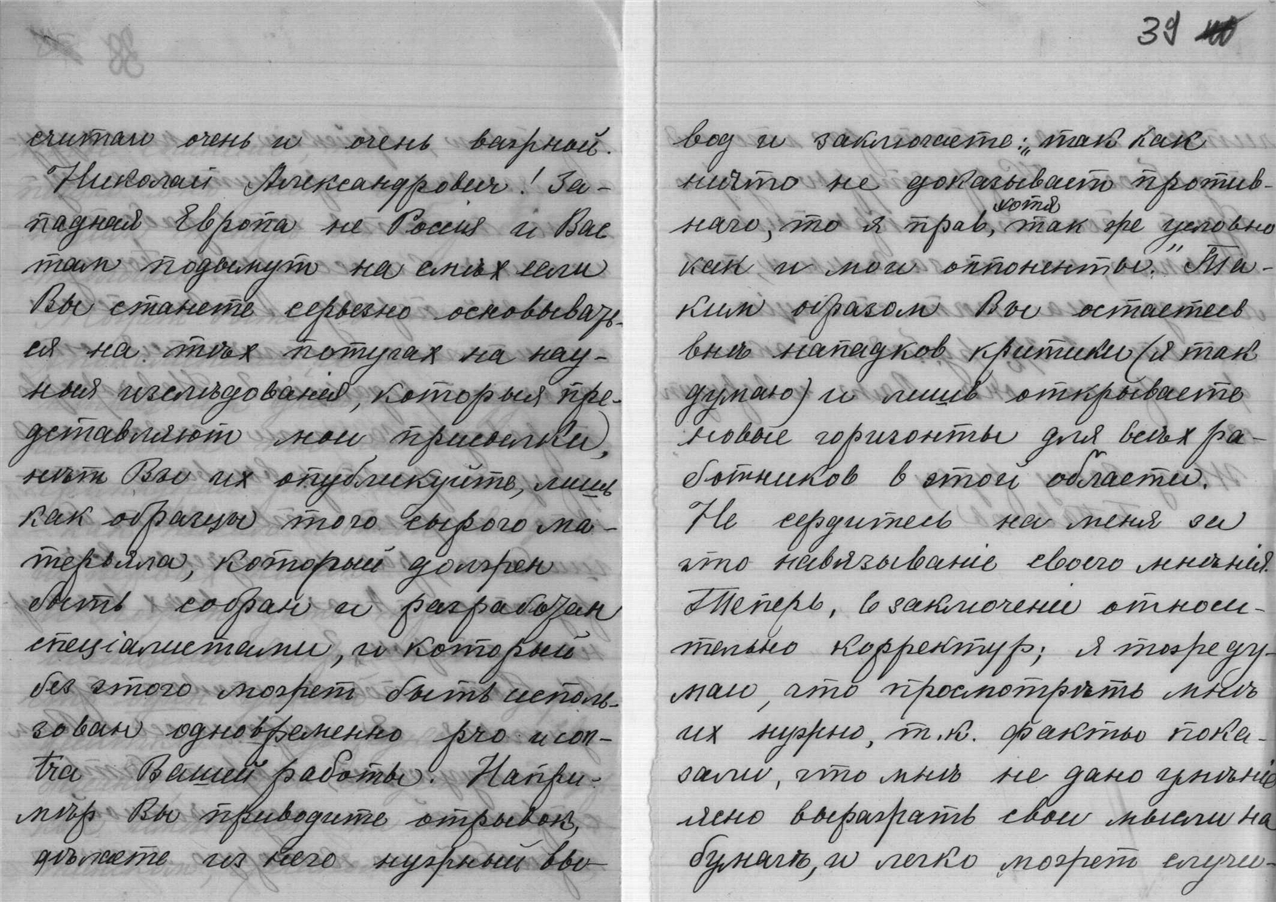 считаю очень и очень важной.
Николай Александрович! За-
падная Европа не Россія и Вас
там подымут на смѣх если
Вы станете серьезно основывать-
ся на тѣх потугах на науч-
ныя изслѣдованія, которыя пре-
дставляют мои присылки,
нѣт Вы их опубликуйте, лишь
как образцы того сырого ма-
терьяла, который должен
быть собран и разработан
спеціалистами, и который
без этого может быть исполь-
зован одновременно pro и con-
tra Вашей работы. Напри-
мѣр Вы приводите отрывок,
дѣлаете из него нужный вы-
39
вод и заключаете: „так как
ничто не доказывает против-
наго, то я прав, хотя так же условно
как и мои оппоненты". Та-
ким образом Вы остаетесь
внѣ нападков критики (я так
думаю) и лишь открываете
новые горизонты для всѣх ра-
ботников в этой области.
Не сердитесь на меня за
это навязываніе своего мнѣнія.
Теперь, в заключеніи относи-
тельно корректур; я тоже ду-
маю, что просмотрѣть мнѣ
их нужно, т.к. факты пока-
зали, что мнѣ не дано умѣніе
ясно выражать свои мысли на
бумагѣ, и легко может случи-